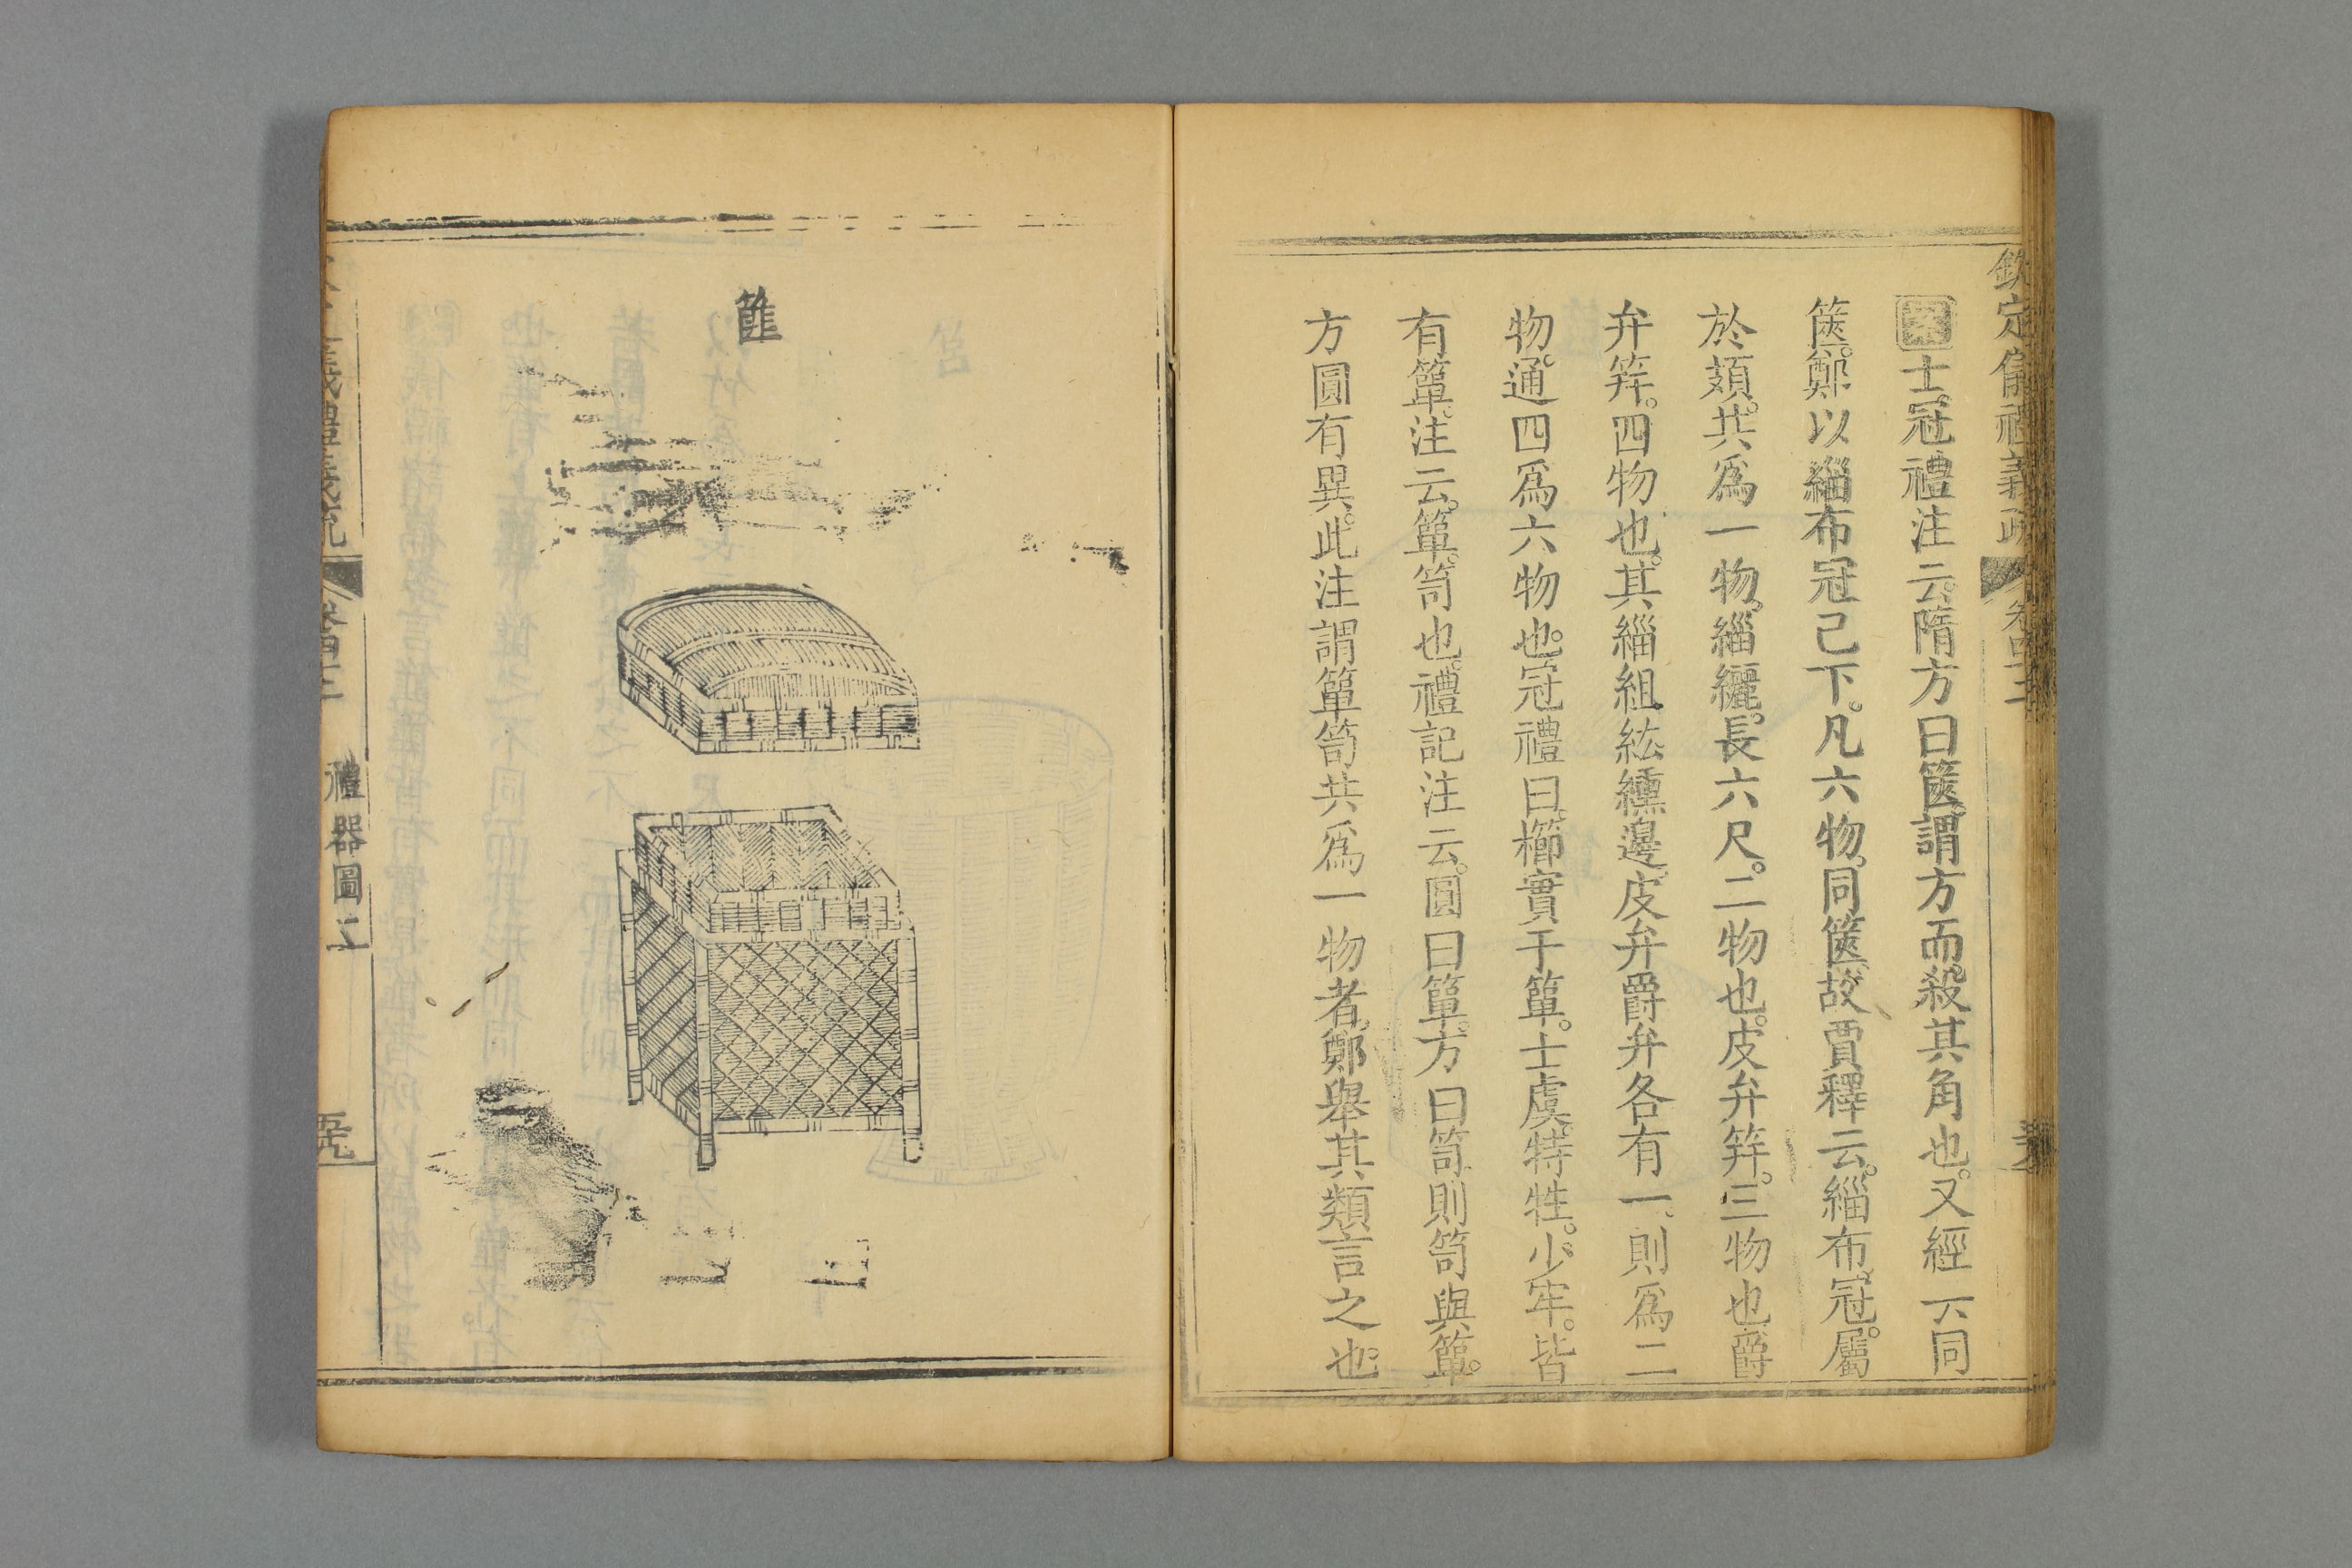 欽定儀禮義疏 卷四十二
案士冠禮注云隋方曰篋謂方而殺其角也又經下同
篋。鄭以緇布冠己下。凡六物。同篋。故賈釋云。緇布冠。屬
於頍。共爲一物。緇纚。長六尺。二物也。皮弁笄。三物也爵
弁笄。四物也。其緇組紘纁邊。皮弁爵弁各有一。則爲二
物。通四爲六物也。冠禮曰。櫛實于簞。士虞。特牲。少牢。皆
有簞。注云。簞。笥也。禮記注云。圓曰簞。方曰笥。則笥與簞。
方圓有異。此注謂簞笥共爲一物者。鄭舉其類言之也。
篚
儀禮義疏
禮器圖